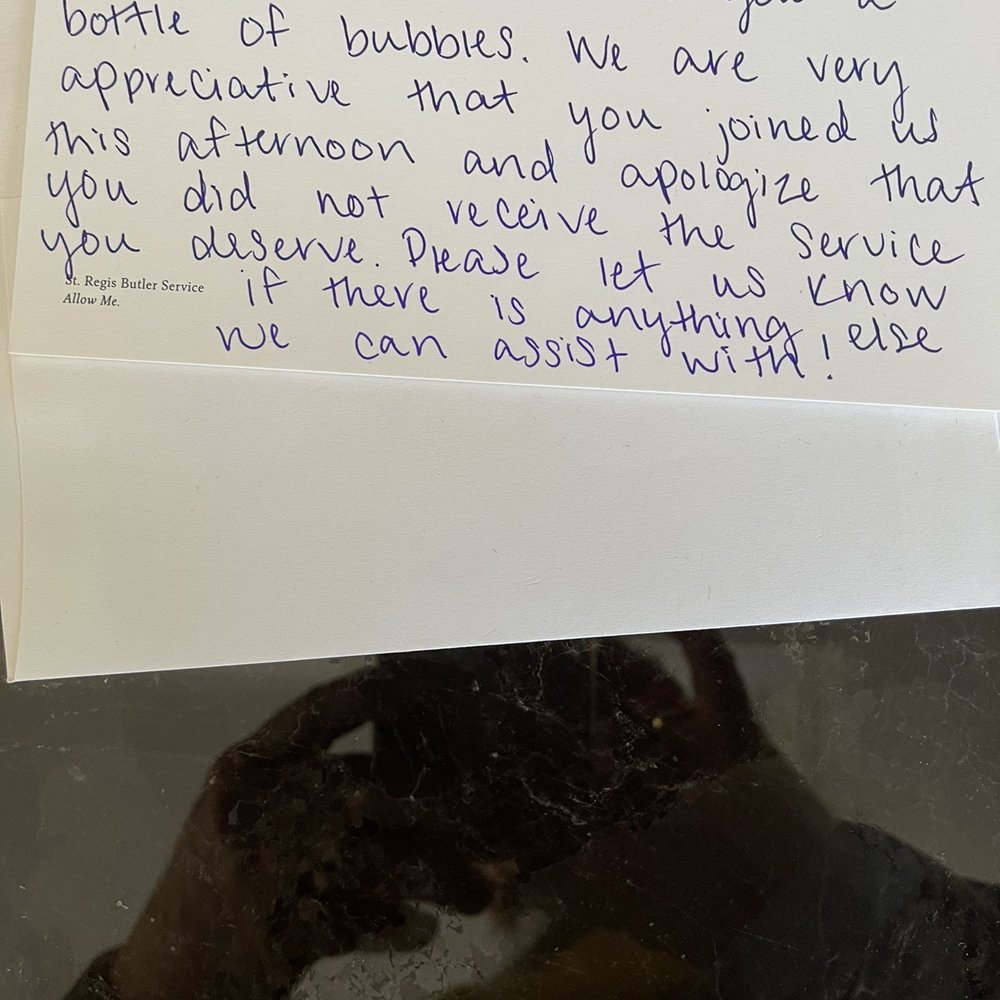 you a
bottle of bubbles. We are very
appreciative that you joined us
this afternoon and apologize that
you did not receive the service
you deserve. Please let us know
if there is anything else
we can assist with!
St. Regis Butler Service
Allow Me.